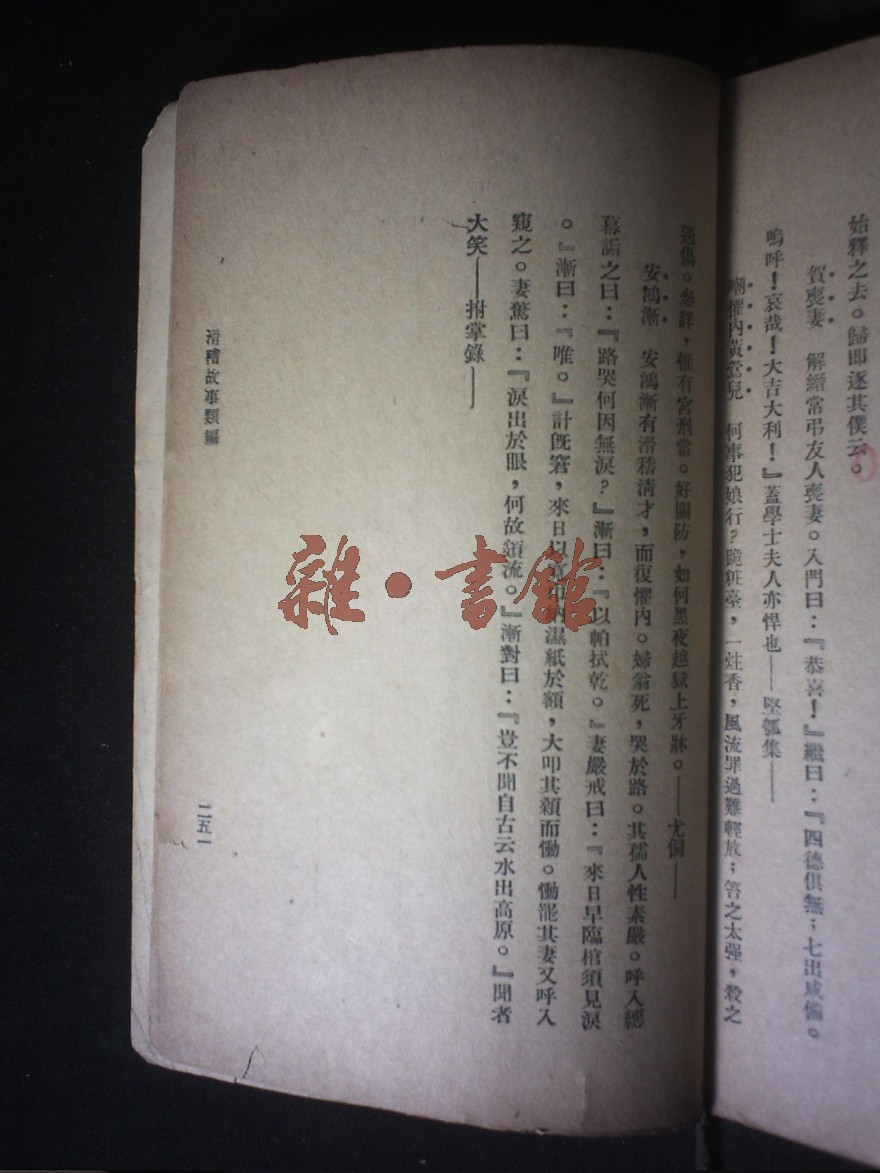 始釋之去。歸即逐其僕云。
賀喪妻　解縉常弔友人喪妻。入門曰：『恭喜！』繼曰：『四德俱無；七出咸備。
嗚呼！哀哉！大吉大利！』蓋學士夫人亦悍也——堅瓠集——
嘲懼內黃鶯兒　何事犯娘行？跪粧臺，一炷香，風流罪過難輕放；笞之太强，殺之
過傷。參詳，惟有宮刑當。好關防，如何黑夜越獄上牙牀。——尤侗——
安鴻漸　安鴻漸有滑稽淸才，而復懼內。婦翁死，哭於路。其孺人性素嚴。呼入繐
幕詬之曰：『路哭何因無淚？』漸曰：『以帕拭乾。』妻嚴戒曰：『來日早臨棺須見淚
。』漸曰：『唯。』計旣窘，來日以納濕紙於額，大叩其顙而慟。慟罷其妻又呼入
窺之。妻驚曰：『淚出於眼，何故額流。』漸對曰：『豈不聞自古云水出高原。』聞者
大笑——拊掌錄——
滑稽故事類編
二五一
雜·書館